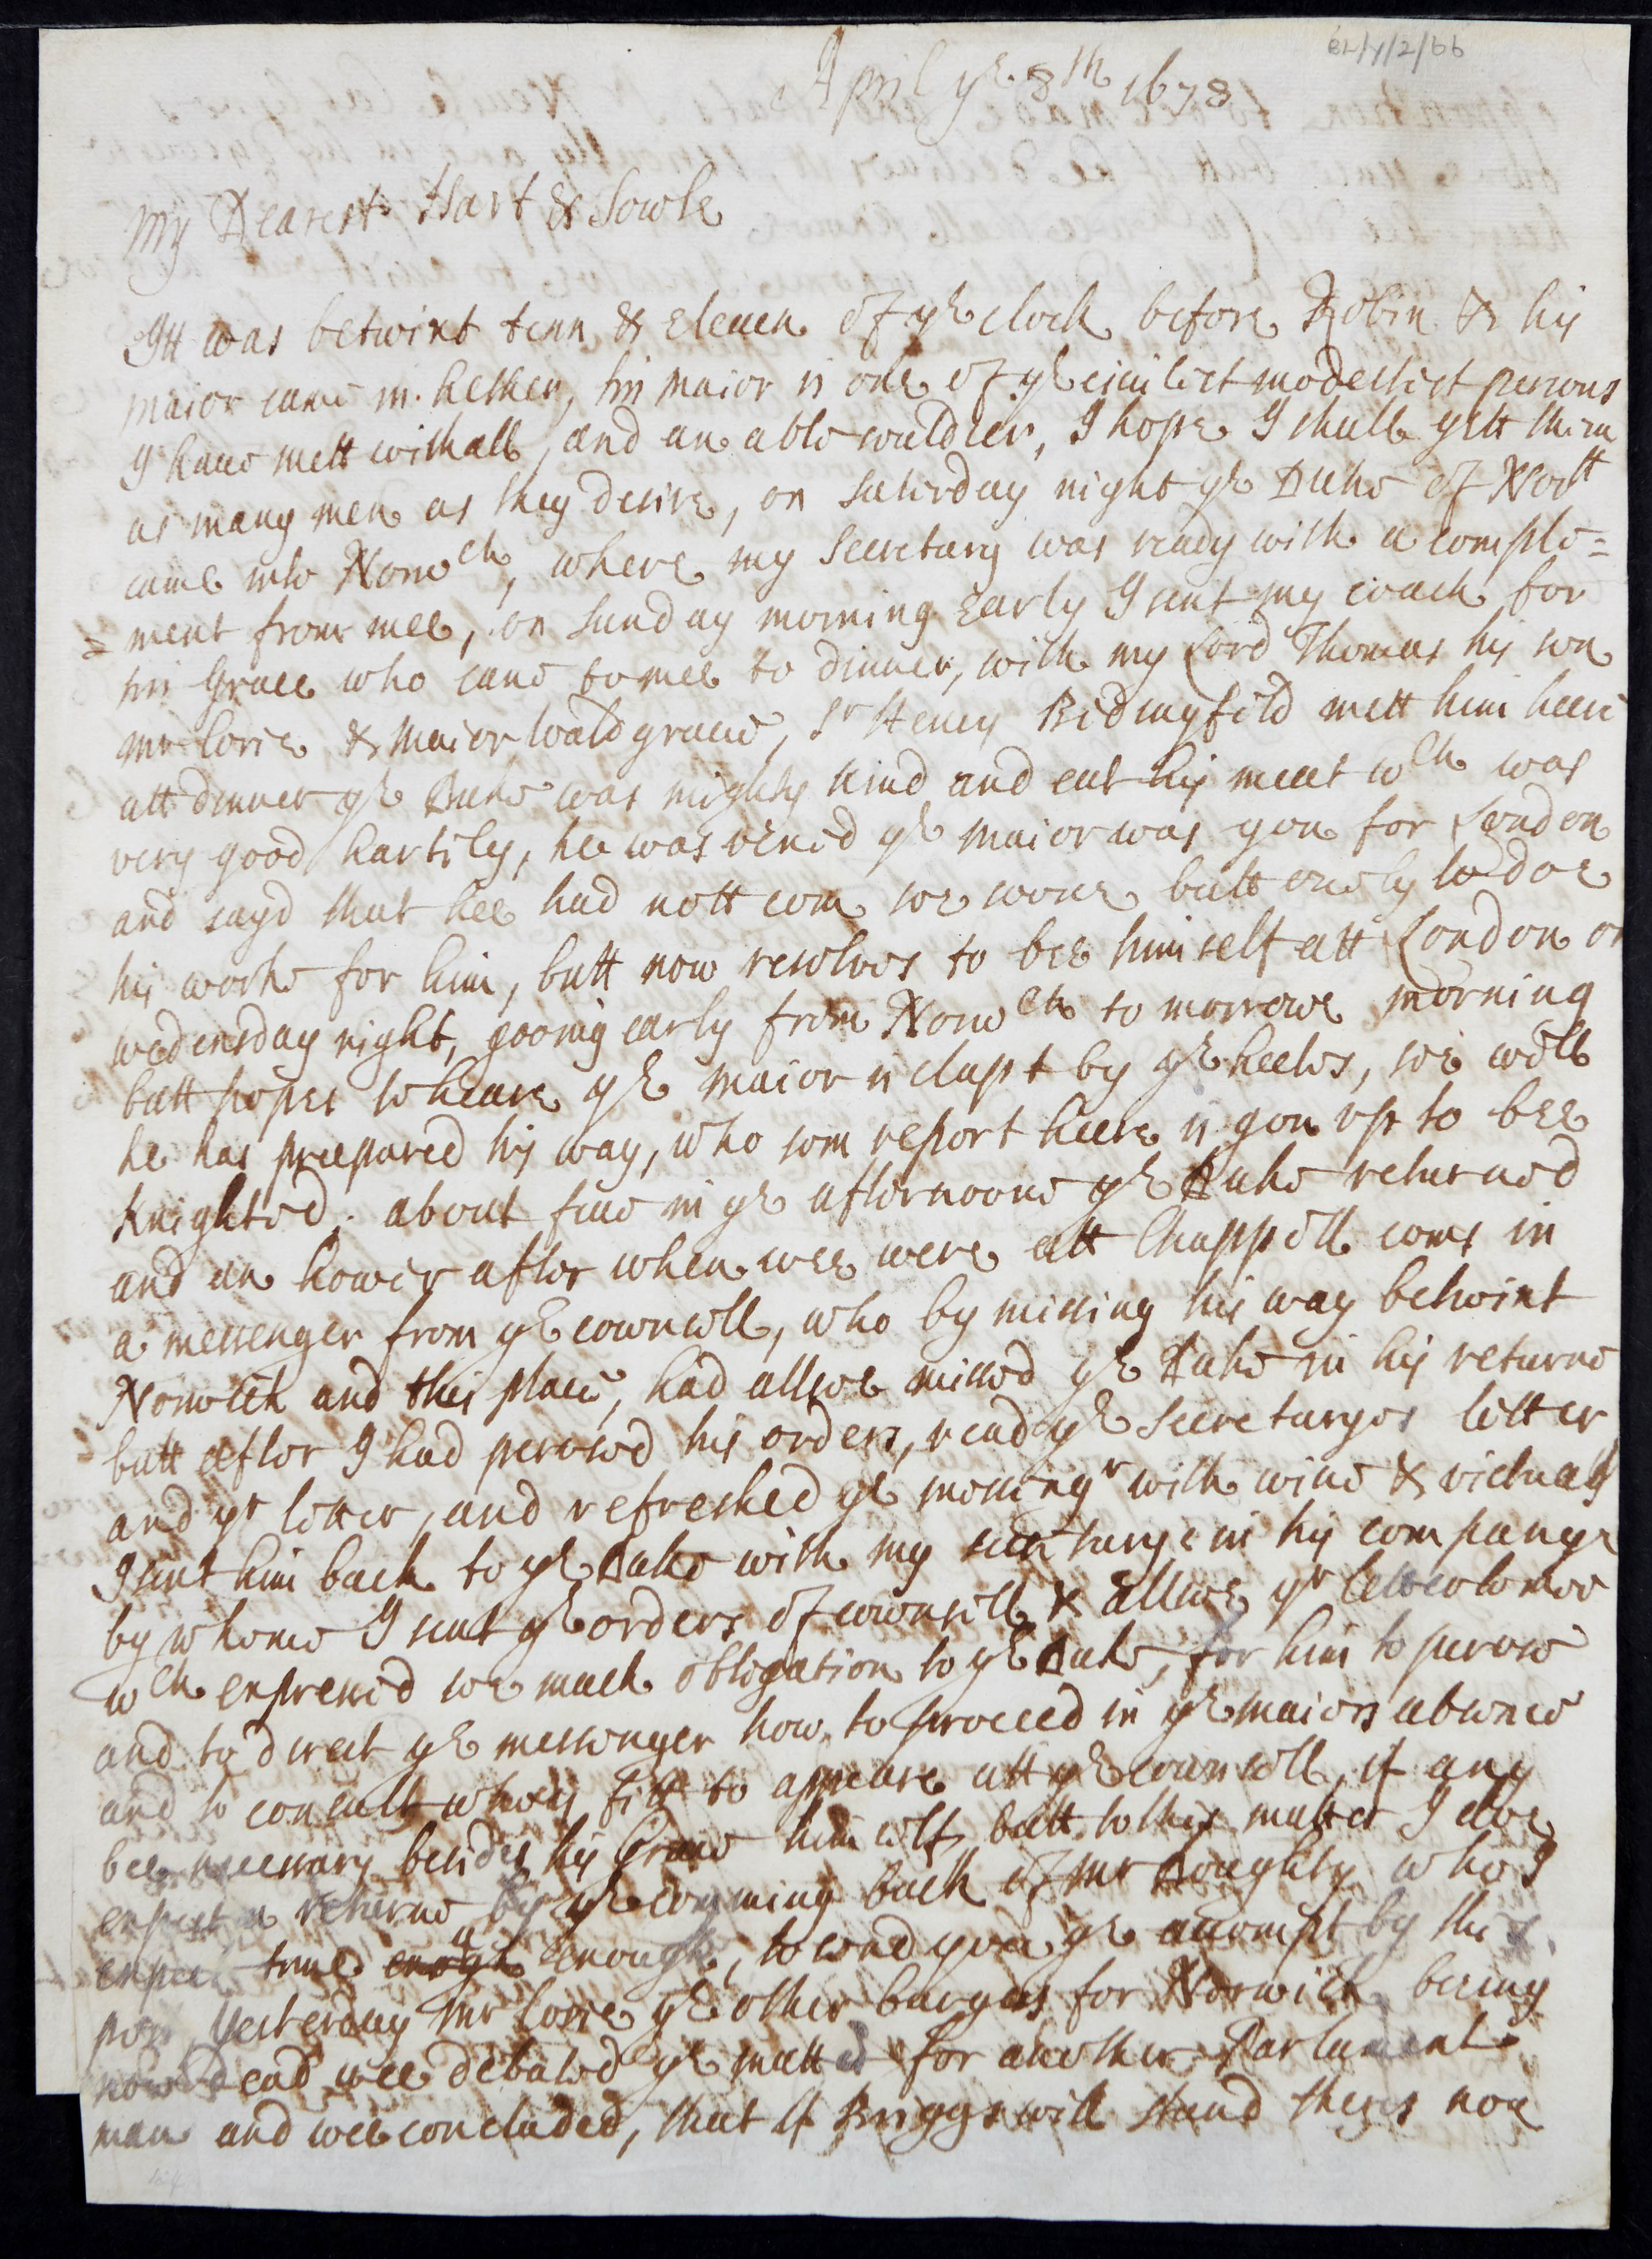 BL/Y/2/66
April ye 8th 1678
My Dearest Hart & Sowle
Itt was betwixt tenn & eleven of ye clock before Robin & his
maior came in hether, his maior is one of ye civilest modestest persons
I have mett withall, and an able souldier, I hope I shall gett them
as many men as they desire, on Saterday night ye Duke of Norff
came into Norwch, where my Secretary was ready with a comple=
=ment from mee, on Sunday morning early I sent my coach for
his Grace who came to mee to dinner, with my Lord Thomas his son
mr Corie & maior Waldgrave, Sr Henry Bedingfild mett him heere
att dinner ye Duke was mighty kind and eat his meat wch was
very good hartily, he was vexed ye maior was gon for London
and sayd that hee had nott com so soone butt onely to doe
his worke for him, butt now resolves to bee himself att London on
wedensday night, gooing early from Norwch to morrow morning
butt hopes to heare ye maior is clapt by ye heeles, so well
he has preepared his way, who som report heere is gon up to bee
knighted. about five in ye afternoone ye Duke returned
and an hower after when wee were att Chappell coms in
a messenger from ye cownsell, who by missing his way betwixt
Norwich and this place, had allsoe missed ye Duke in his returne
butt after I had perused his orders, read ye Secretaryes letter
and yr letter, and refreshed ye messingr with wine & victualls
I sent him back to ye Duke with my secretarye in his companye
by whome I sent ye orders of cownsill & allsoe yr letter to mee
wch expressed soe much obligation to ye Duke, for him to peruse
and to direct ye messenger how to proceed in ye maiors absence
and to consult who is fitt to appeare att ye cownsell, if any
bee necessary besides his Grace himself, butt to this matter I doe
expect a returne by ye comming back of mr Doughty who I
expect time enough enough, to send you ye accompt by this
post, yesterday mr Corie ye other burges for Norwich being
now dead wee debated ye matter for another Parlument
man and wee concluded, that if Briggs will stand theres non